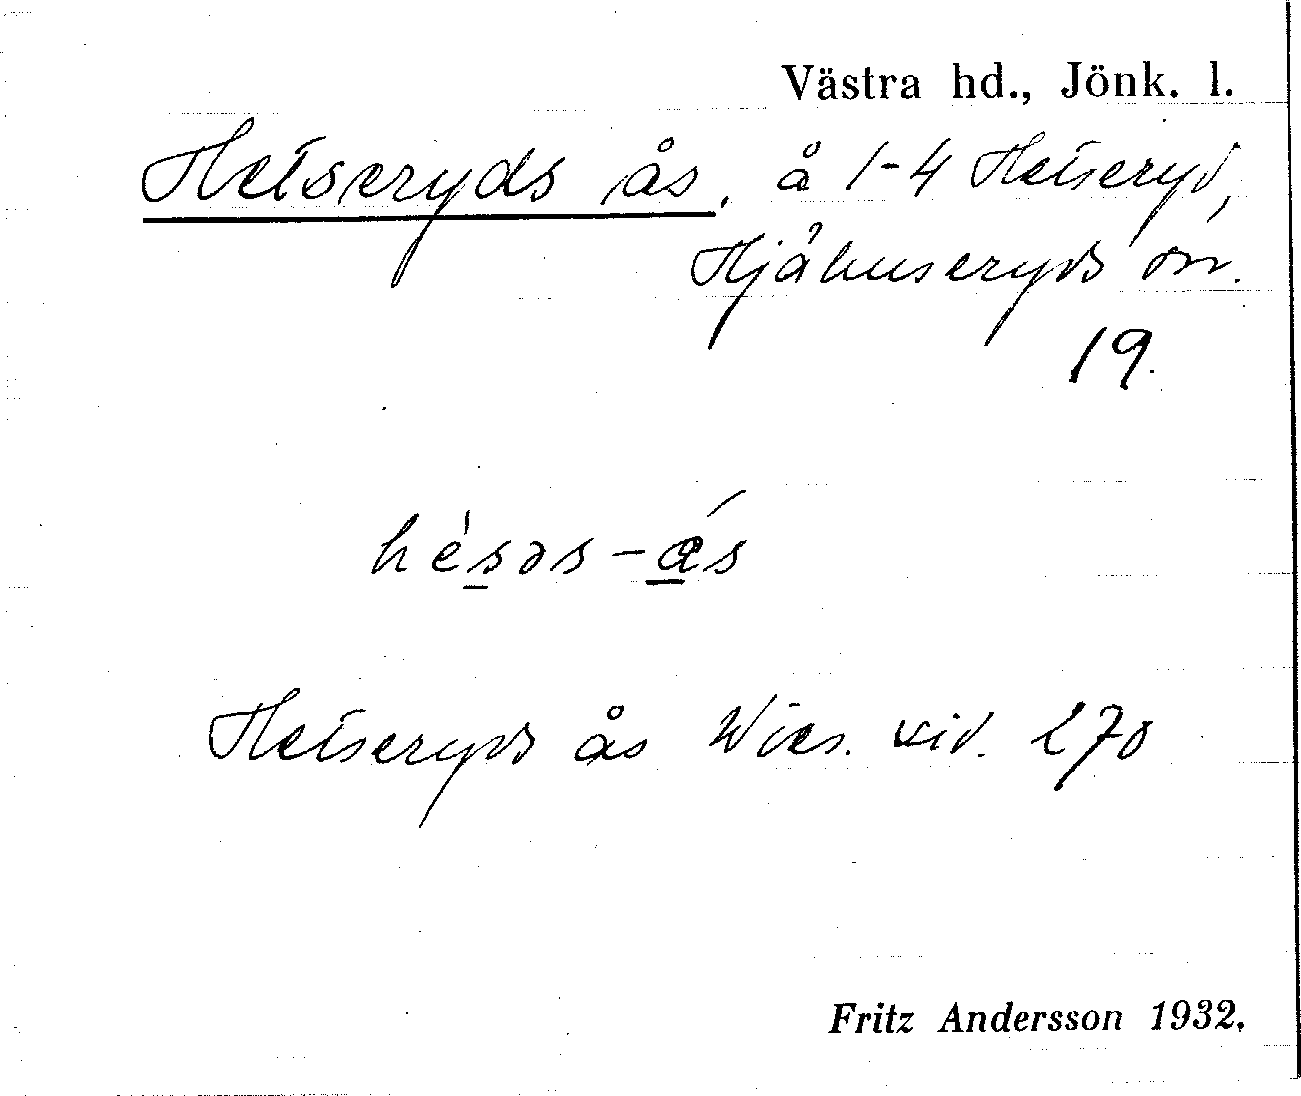 Västra hd., Jönk. l.
Hetseryds ås, å 1-4 Hetseryd,
Hjåhuseryds sn.
19.
hèsəs-ás
Hetseryds ås Wies. vid. 270
Fritz Andersson 1932.